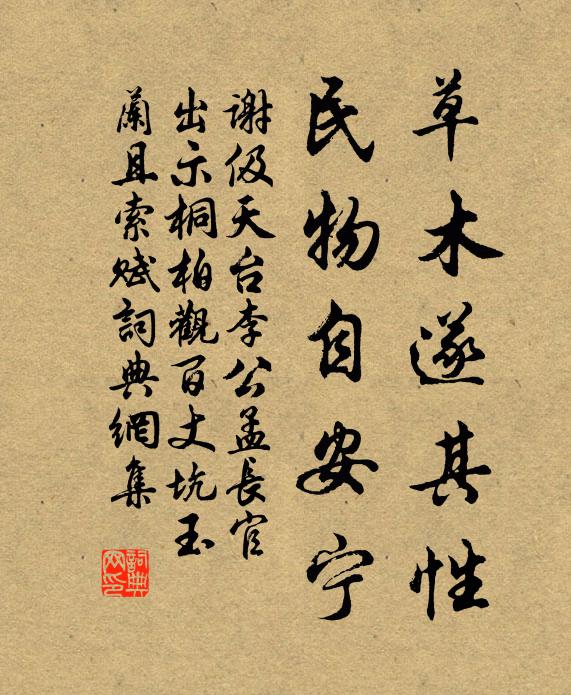 草木遂其性
民物自安宁
谢伋天台李公孟長官
出示桐柏觀百丈坑玉
蘭且索赋詞典網集
詞典
网印